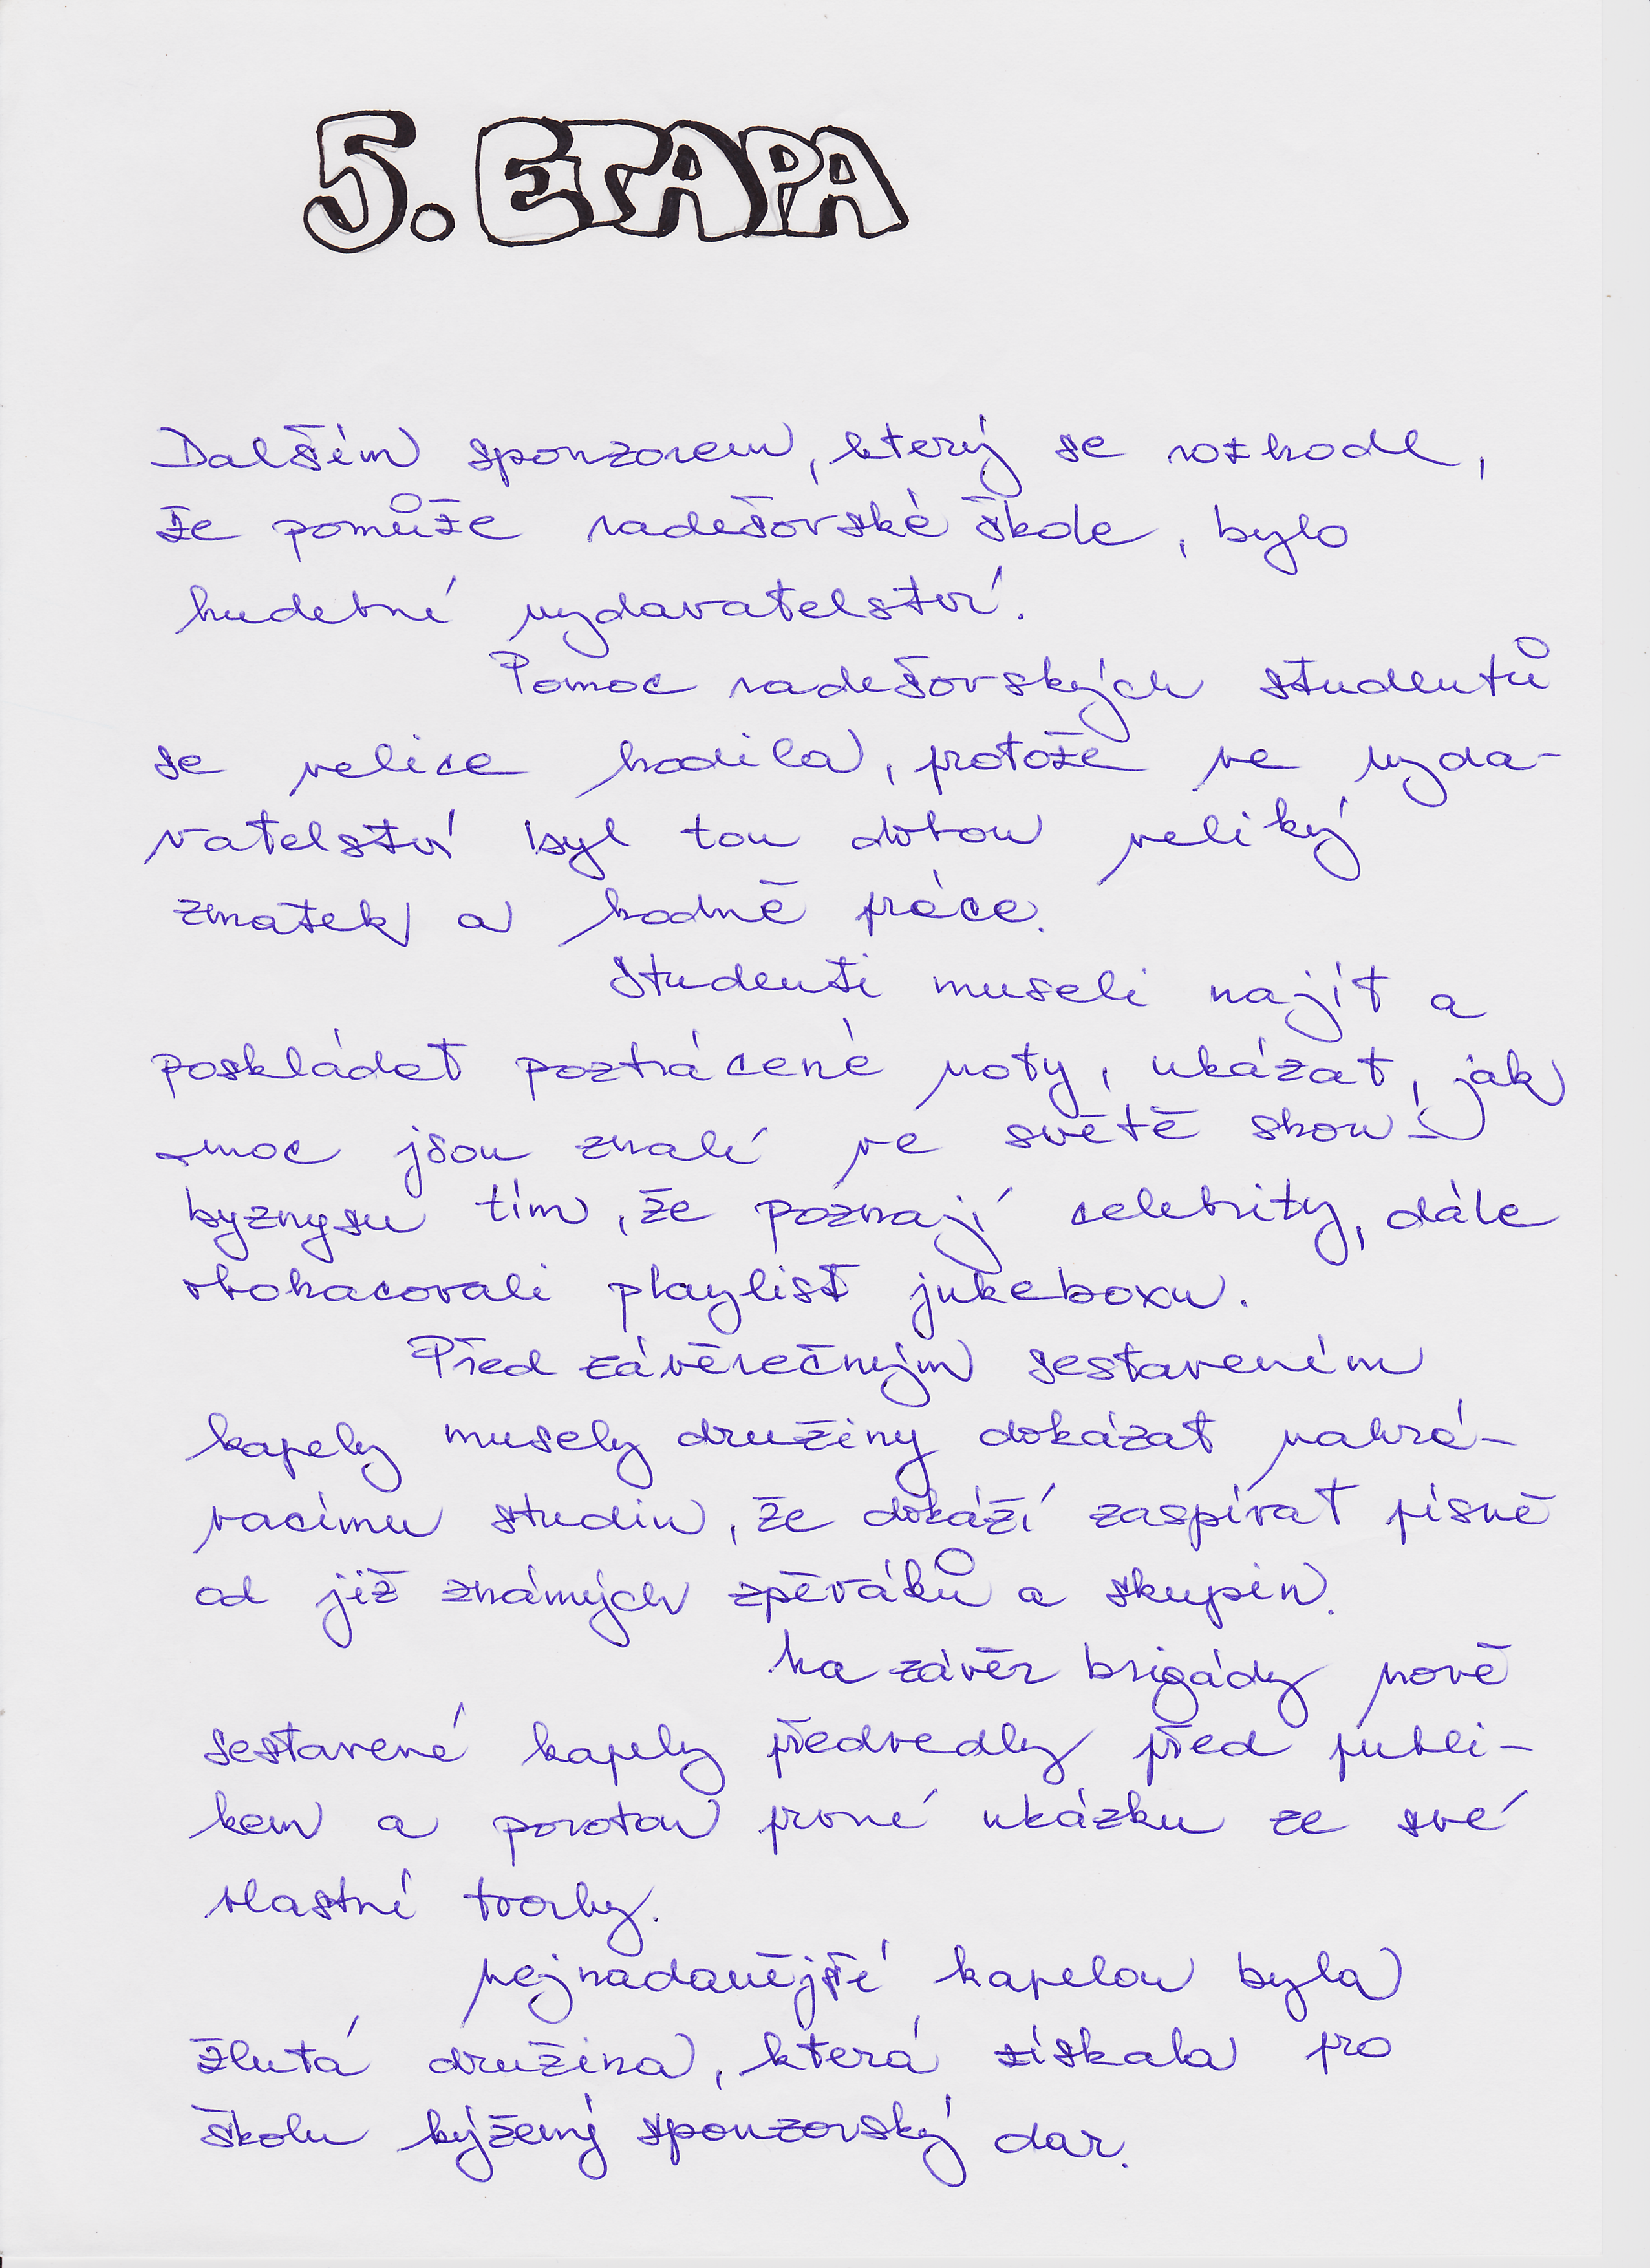 5. ETAPA
Dalším sponzorem, který se rozhodl,
že pomůže radešovské škole, bylo
hudební vydavatelství.
Pomoc radešovských studentů
se velice hodila, protože ve vyda-
vatelství byl tou dobou veliký
zmatek a hodně práce.
Studenti museli najít a
poskládat poztrácené noty, ukázat, jak
moc jsou znalí ve světě show
byznysu tím, že poznají celebrity, dále
obohacovali playlist jukeboxu.
Před závěrečným sestavením
kapely musely družiny dokázat nahrá-
vacímu studiu, že dokáží zaspívat písně
od již známých zpěváků a skupin.
Na závěr brigády nově
sestavené kapely předvedly před publi-
kem a porotou první ukázku ze své
vlastní tvorby.
Nejnadanější kapelou byla
žlutá družina, která získala pro
školu kýžený sponzorský dar.